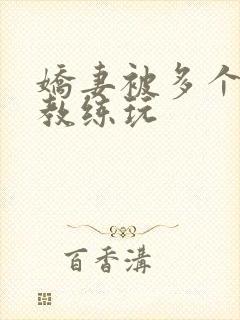 嬌妻被多个
教练玩
百香溝